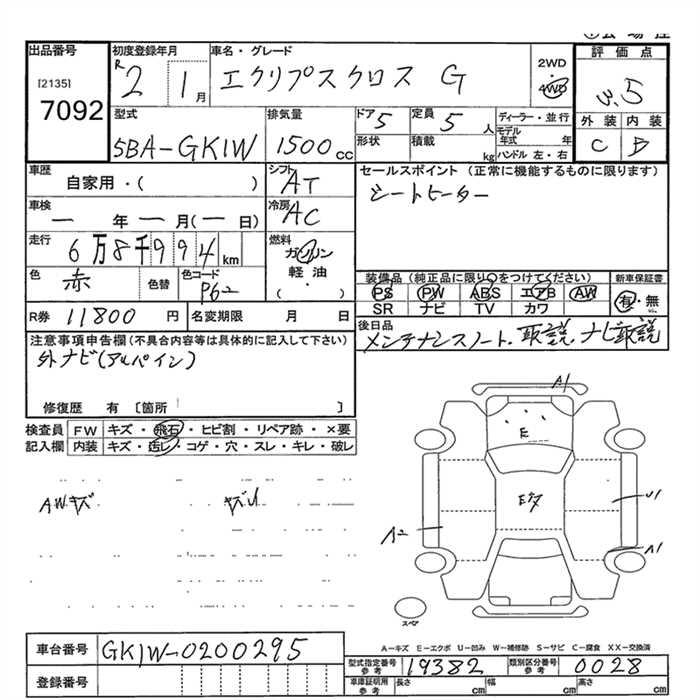 出品番号 初度登録年月 車名・グレード 2WD 評価点
[2135] R2 1月 エクリプスクロス G 4WD 3.5
7092 型式 排気量 ドア 定員 ディーラー・並行 外装 内装
5BA-GK1W 1500cc 5 5人 モデル年式 年 C B
形状 積載 kg ハンドル 左・右
車歴 シフト セールスポイント(正常に機能するものに限ります)
自家用・( ) AT シートヒーター
車検 冷房
一年一月(一日) AC
走行 燃料
6万8千994km ガソリン
色 色替 色コード 軽油・ 装備品(純正品に限り○をつけてください) 新車保証書
赤 P62 ( ) PS PW ABS エアB AW 有・無
SR ナビ TV カワ
R券 11800円 名変期限 月 日 後日品
メンテナンスノート、取説、ナビ取説
注意事項申告欄(不具合内容等は具体的に記入して下さい)
外ナビ(アルパイン)
修復歴 有 [箇所 ]
検査員 FW キズ・飛石・ヒビ割・リペア跡・×要
記入欄 内装 キズ・汚レ・コゲ・穴・スレ・キレ・破レ
A1
E
AWキズ キズU
U1
A2
A1
スペア
A-キズ E-エクボ U-凹み W-補修跡 S-サビ C-腐食 XX-交換済
車台番号 GK1W-0200295
型式指定番号 参考 19382 類別区分番号 参考 0028
登録番号 車庫証明用 参考 長さ cm 幅 cm 高さ cm